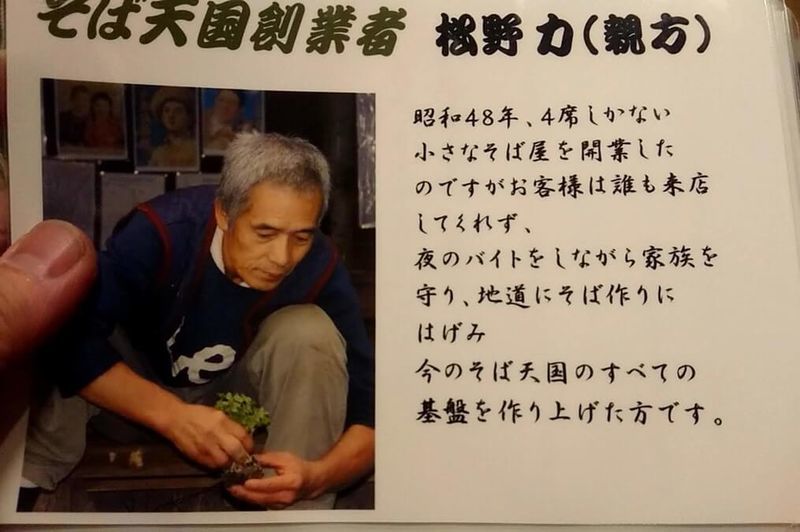 そば天国創業者 松野力(親方)
昭和48年、4席しかない
小さなそば屋を開業した
のですがお客様は誰も来店
してくれず、
夜のバイトをしながら家族を
守り、地道にそば作りに
はげみ
今のそば天国のすべての
基盤を作り上げた方です。